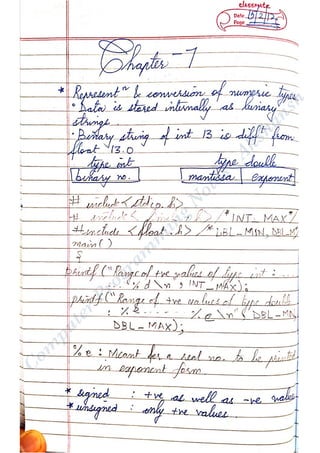 classmate
Date 15/2/12
Page
Chapter - 7
* Representⁿ & conversion of numeric types
• Data is stored internally as binary
strings.
• Binary string of int 13 is difft from
float 13.0
type int type double
binary no. mantissa exponent
# include <stdio.h>
# include < .h> /* INT_MAX */
# include <float.h> /* DBL_MIN, DBL_M
main()
{
printf("Range of +ve values of type int : ....
% d \n", INT_MAX);
printf("Range of +ve values of type double
: % e ..... % e \n", DBL_MIN
DBL_MAX);
% e : Meant for a real no. to be printed
in exponent form.
* signed : +ve as well as -ve values
* unsigned : only +ve values.
Computer Programming Notes